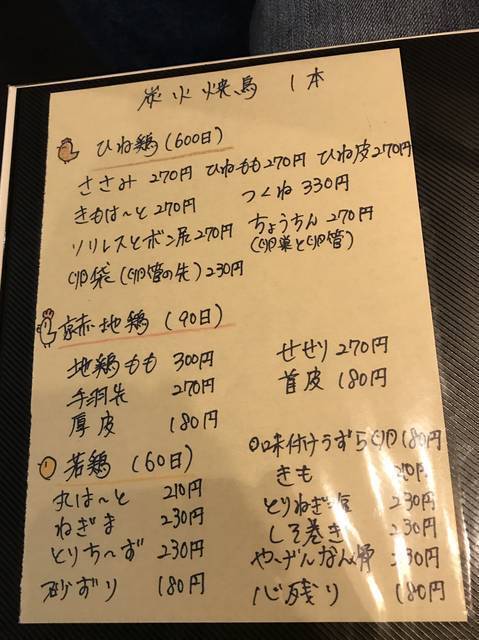 炭火焼鳥 1本
ひね鶏(600日)
ささみ 270円 ひねもも270円 ひね皮270円
きもはーと270円 つくね 330円
ソリレスとボン尻270円 ちょうちん 270円
(卵巣と卵管)
卵袋(卵管の先)230円
京赤地鶏 (90日)
地鶏もも 300円 せせり270円
手羽先 270円 首皮 180円
厚皮 180円
若鶏 (60日) 味付けうずら卵180円
丸はーと 210円 きも 210円
ねぎま 230円 とりねぎ塩 230円
とりちーず 230円 しそ巻き 230円
砂ずり 180円 やげんなん骨 230円
心残り 180円